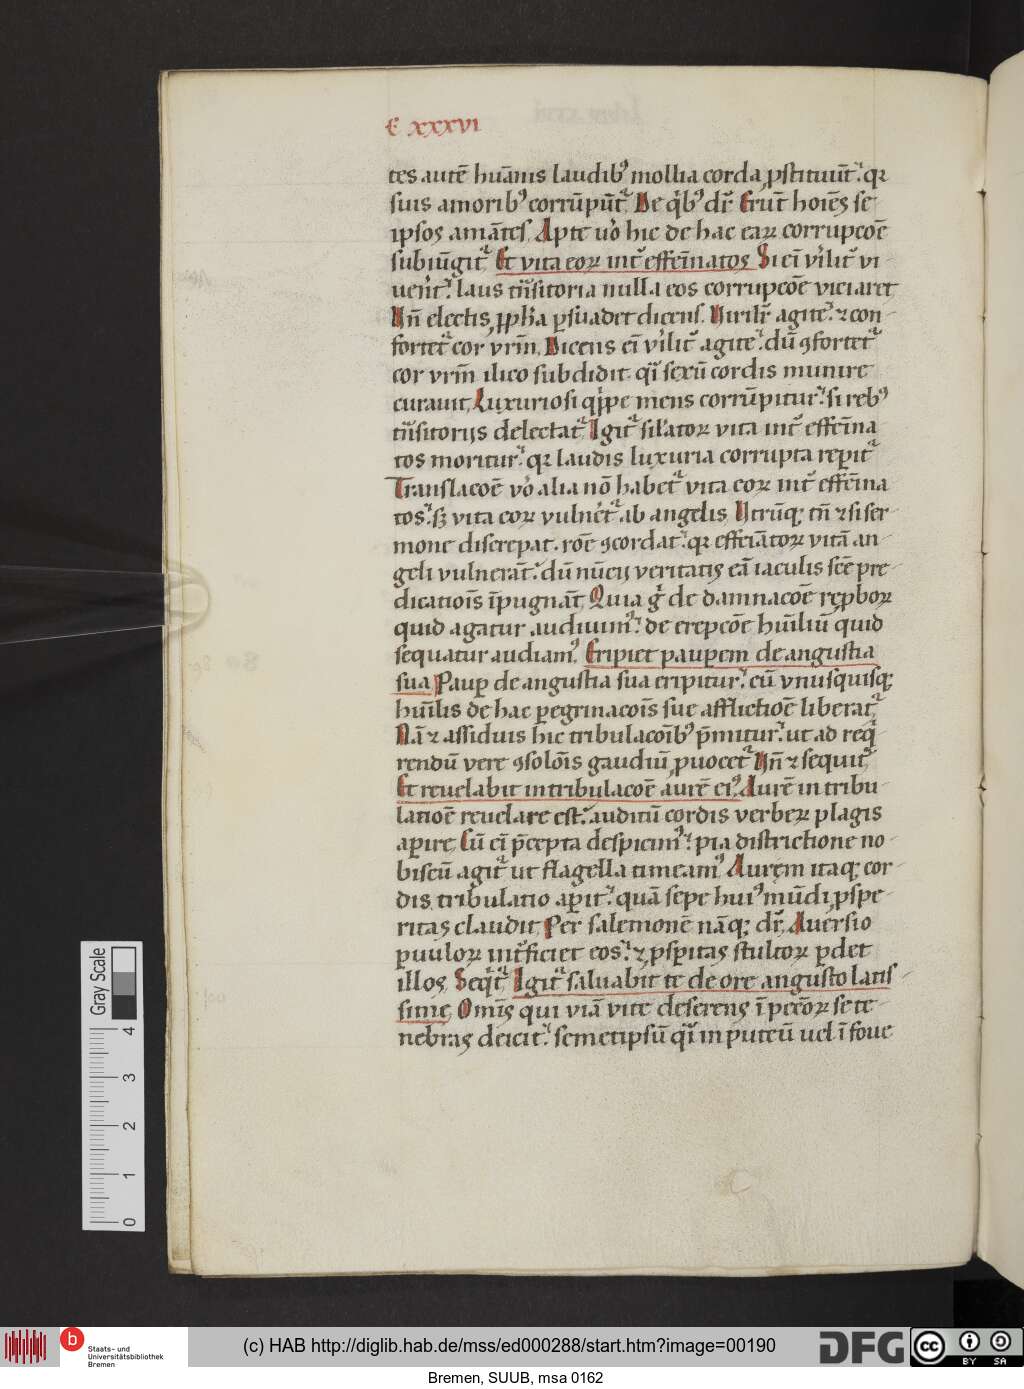 C xxxvi
tes autē huānis laudibꝰ mollia corda ꝓstituūt᷑ qꝛ
suis amoribꝰ corrūpūt᷑ De q̇bꝰ dr̄ Erūt hoīes se
ipsos amātes. Apte u̇o hic de hac eaꝝ corrupcōe
subiūgit᷑ Et vita eoꝝ int᷑ effēīatos Si eī v̇ilit᷑ vi
uer̄t laus tn̄sitoria nulla eos corrupcōe viciaret
Hn̄ electis ꝓph̄a ꝑsuadet dicens. Viril᷑r agite. ⁊ con
fortet᷑ cor vrm̄. Dicens eī v̇ilit᷑ agite. dū ꝯfortet᷑
cor vrm̄ ilico subdidit. qͥ sexū cordis munire
curauit. Luxuriosi qͥppe mens corrūpitur. si rebꝰ
tn̄sitorijs delectat᷑ Igit᷑ sil̄atoꝝ vita int᷑ effēīna
tos moritur. qꝛ laudis luxuria corrupta reꝑit᷑
Translacōe v̇o alia nō habet᷑ vita eoꝝ int᷑ effēīna
tos. sꝫ vita eoꝝ vulnēt᷑ ab angelis Vtrūqꝫ tn̄ ⁊ si ser
mone discrepat. rōe ꝯcordat. qꝛ effēīatoꝝ vitā an
geli vulnerāt. dū nūcij veritatis eā iaculis scē pre
dicatiois īpugnāt Quia gͦ de damnacōe reꝓboꝝ
quid agatur audiuimꝰ. de erepcōe hūiliū quid
sequatur audiamꝰ. Eripiet pauꝑem de angustia
sua Pauꝑ de angustia sua eripitur. cū vnusquisqꝫ
hūilis de hac ꝑegrinacois sue afflictiōe liberat᷑
Nā ⁊ assiduis hic tribulacoībꝰ p̄mitur. ut ad reqͥ
rendū vere ꝯsolois gaudiū ꝓuocet᷑ Hn̄ ⁊ sequit᷑
Et reuelabit in tribulacoē aurē eiꝰ. Aurē in tribu
latioē reuelare est. auditū cordis verbeꝝ plagis
aꝑire. Cū eī p̄cepta despicimꝰ. pia districtione no
biscū agit᷑ ut flagella timeamꝰ. Aurem itaqꝫ cor
dis tribulatio aꝑit. quā sepe huiꝰ mūdi ꝓspe
ritas claudit. Per salemonē nāqꝫ dr̄. Auersio
ꝑuuloꝝ int᷑ficiet eos. ⁊ ꝓsꝑitas stultoꝝ ꝑdet
illos. Seqͥt᷑ Igit᷑ saluabit te de ore angusto latis
sime. Omīs qui viā vite deserens ī pccōꝝ se te
nebras deicit. semetipsū qͥ in puteū uel ī foue
Gray Scale
4
3
2
1
0
b
Staats- und
Universitätsbibliothek
Bremen
(c) HAB http://diglib.hab.de/mss/ed000288/start.htm?image=00190
DFG
cc
BY SA
Bremen, SUUB, msa 0162